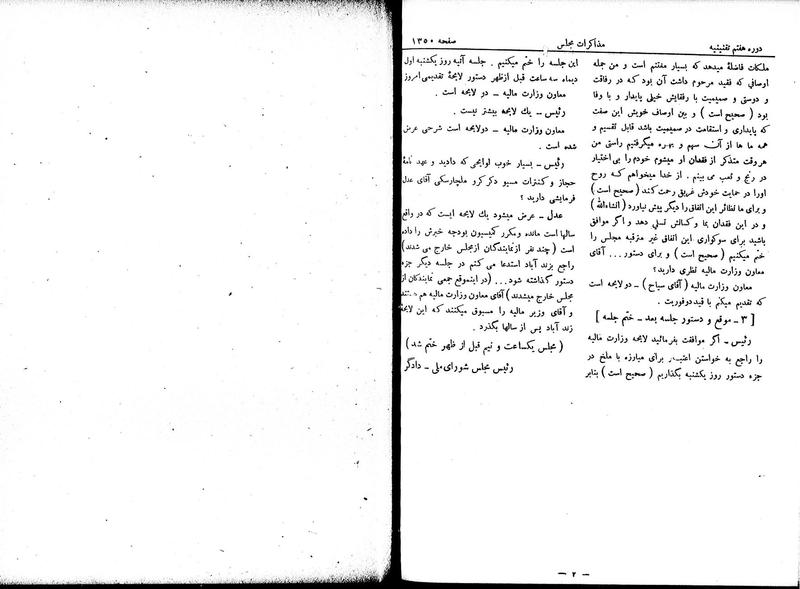 دوره هفتم تقنینیه
مذاکرات مجلس
صفحه ۱۳۵۰
ملکات فاضلهٔ میدهد که بسیار مغتنم است و من جمله
اوصافی که فقید مرحوم داشت آن بود که در رفاقت
و دوستی و صمیمیت با رفقایش خیلی پایدار و با وفا
بود ( صحیح است ) و بین اوصاف خوبش این صفت
که پایداری و استقامت در صمیمیت باشد قابل تقسیم و
همه ما ها از آن سهم و بهره میگرفتیم راستی من
هر وقت متذکر از فقدان او میشوم خودم را بی اختیار
در رنج و تعب می بینم . از خدا میخواهم که روح
اورا در حمایت خودش غریق رحمت کند ( صحیح است )
و برای ما نظائر این اتفاق را دیگر پیش نیاورد ( انشاءالله )
و در این فقدان بما و کسانش تسلی دهد و اگر موافق
باشید برای سوکواری این اتفاق غیر مترقبه مجلس را
ختم میکنیم ( صحیح است ) و برای دستور ... آقای
معاون وزارت مالیه نظری دارید؟
معاون وزارت مالیه ( آقای سیاح ) ـ دو لایحه است
که تقدیم میکنم با قید دو فوریت .
[ ۳ ـ موقع و دستور جلسه بعد ـ ختم جلسه ]
رئیس ـ اگر موافقت بفرمائید لایحه وزارت مالیه
را راجع به خواستن اعتبار برای مبارزه با ملخ در
جزء دستور روز یکشنبه بگذاریم ( صحیح است ) بنابر
این جلسه را ختم میکنیم . جلسه آتیه روز یکشنبه اول
دیماه سه ساعت قبل از ظهر دستور لایحهٔ تقدیمی امروز
معاون وزارت مالیه ـ دو لایحه است .
رئیس ـ یك لایحه بیشتر نیست .
معاون وزارت مالیه ـ دولایحه است شرحی عرض
شده است .
رئیس ـ بسیار خوب لوایحی که دادید و عهد نامهٔ
حجاز و کنترات مسیو دکر کرو ملچارسکی آقای عدل
فرمایشی دارید ؟
عدل ـ عرض میشود یك لایحه ایست که در واقع
سالها است مانده و مکرر کمیسیون بودجه خبرش را داده
است ( چند نفر از نمایندگان از مجلس خارج می شدند )
راجع بزند آباد استدعا می کنم در جلسه دیگر جزء
دستور گذاشته شود ... ( در اینموقع جمعی نمایندگان از
مجلس خارج میشدند ) آقای معاون وزارت مالیه هم هستند
و آقای وزیر مالیه را مسبوق میکنند که این لایحهٔ
زند آباد پس از سالها بگذرد .
( مجلس یکساعت و نیم قبل از ظهر ختم شد )
رئیس مجلس شورای ملی ـ دادگر
ـ ۲ ـ